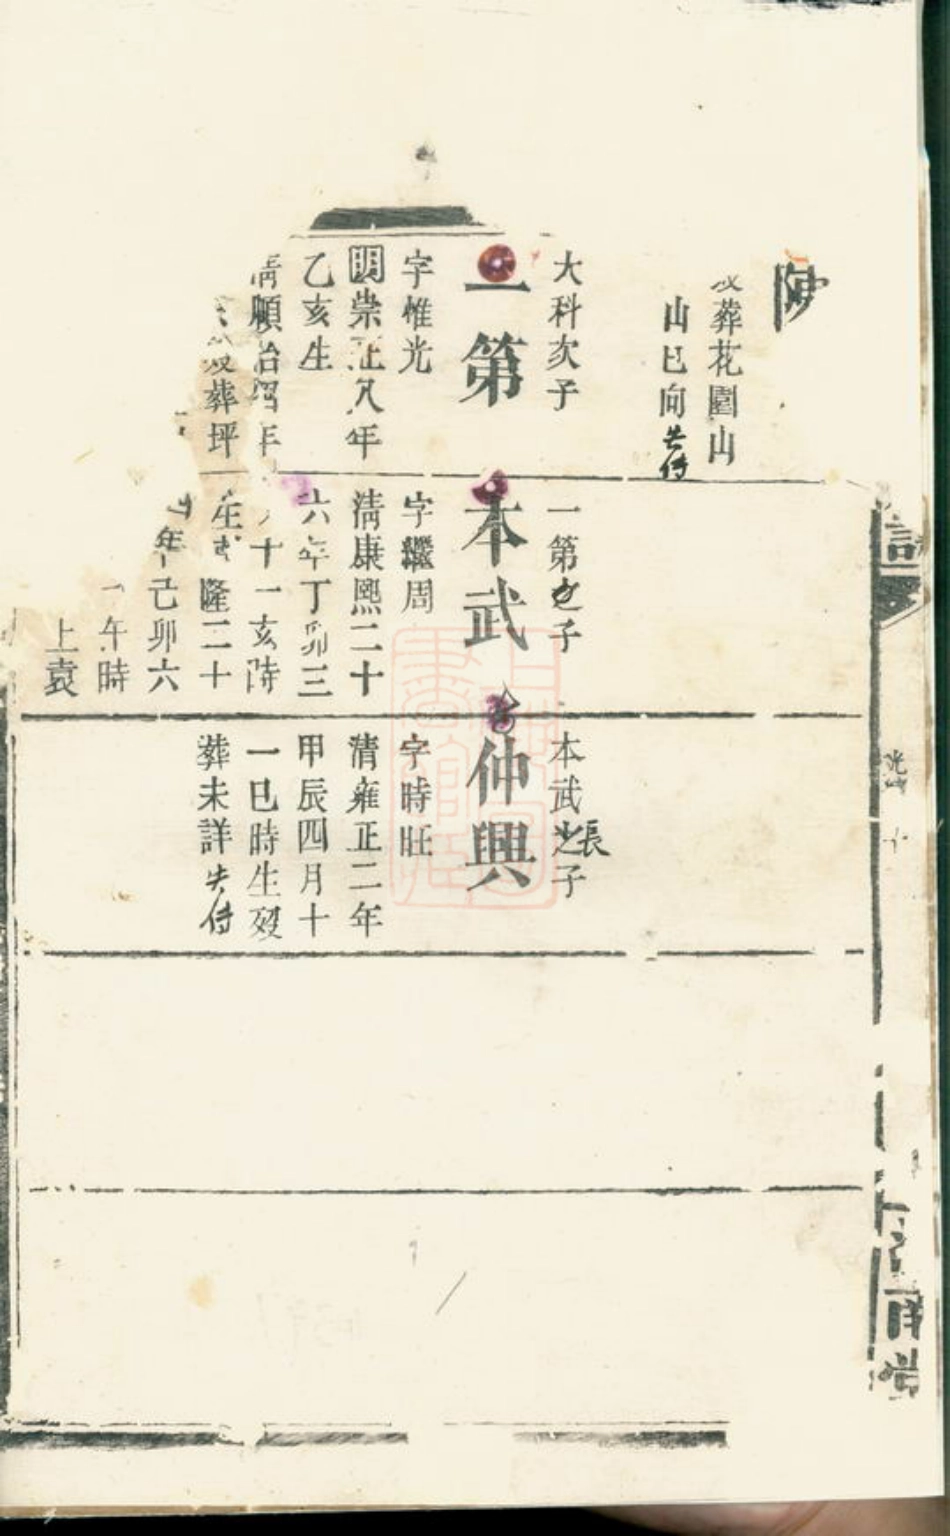 陳
葬花園山
山巳向失传
大科次子
一第
字惟光
明崇正八年
乙亥生
清順治四年
葬坪
一第之子
本武
字繼周
清康熙二十
六年丁卯三
十一亥時
生
隆二十
年己卯六
午時
上袁
本武長之子
仲興
字時旺
清雍正二年
甲辰四月十
一巳時生歿
葬未詳失传
譜